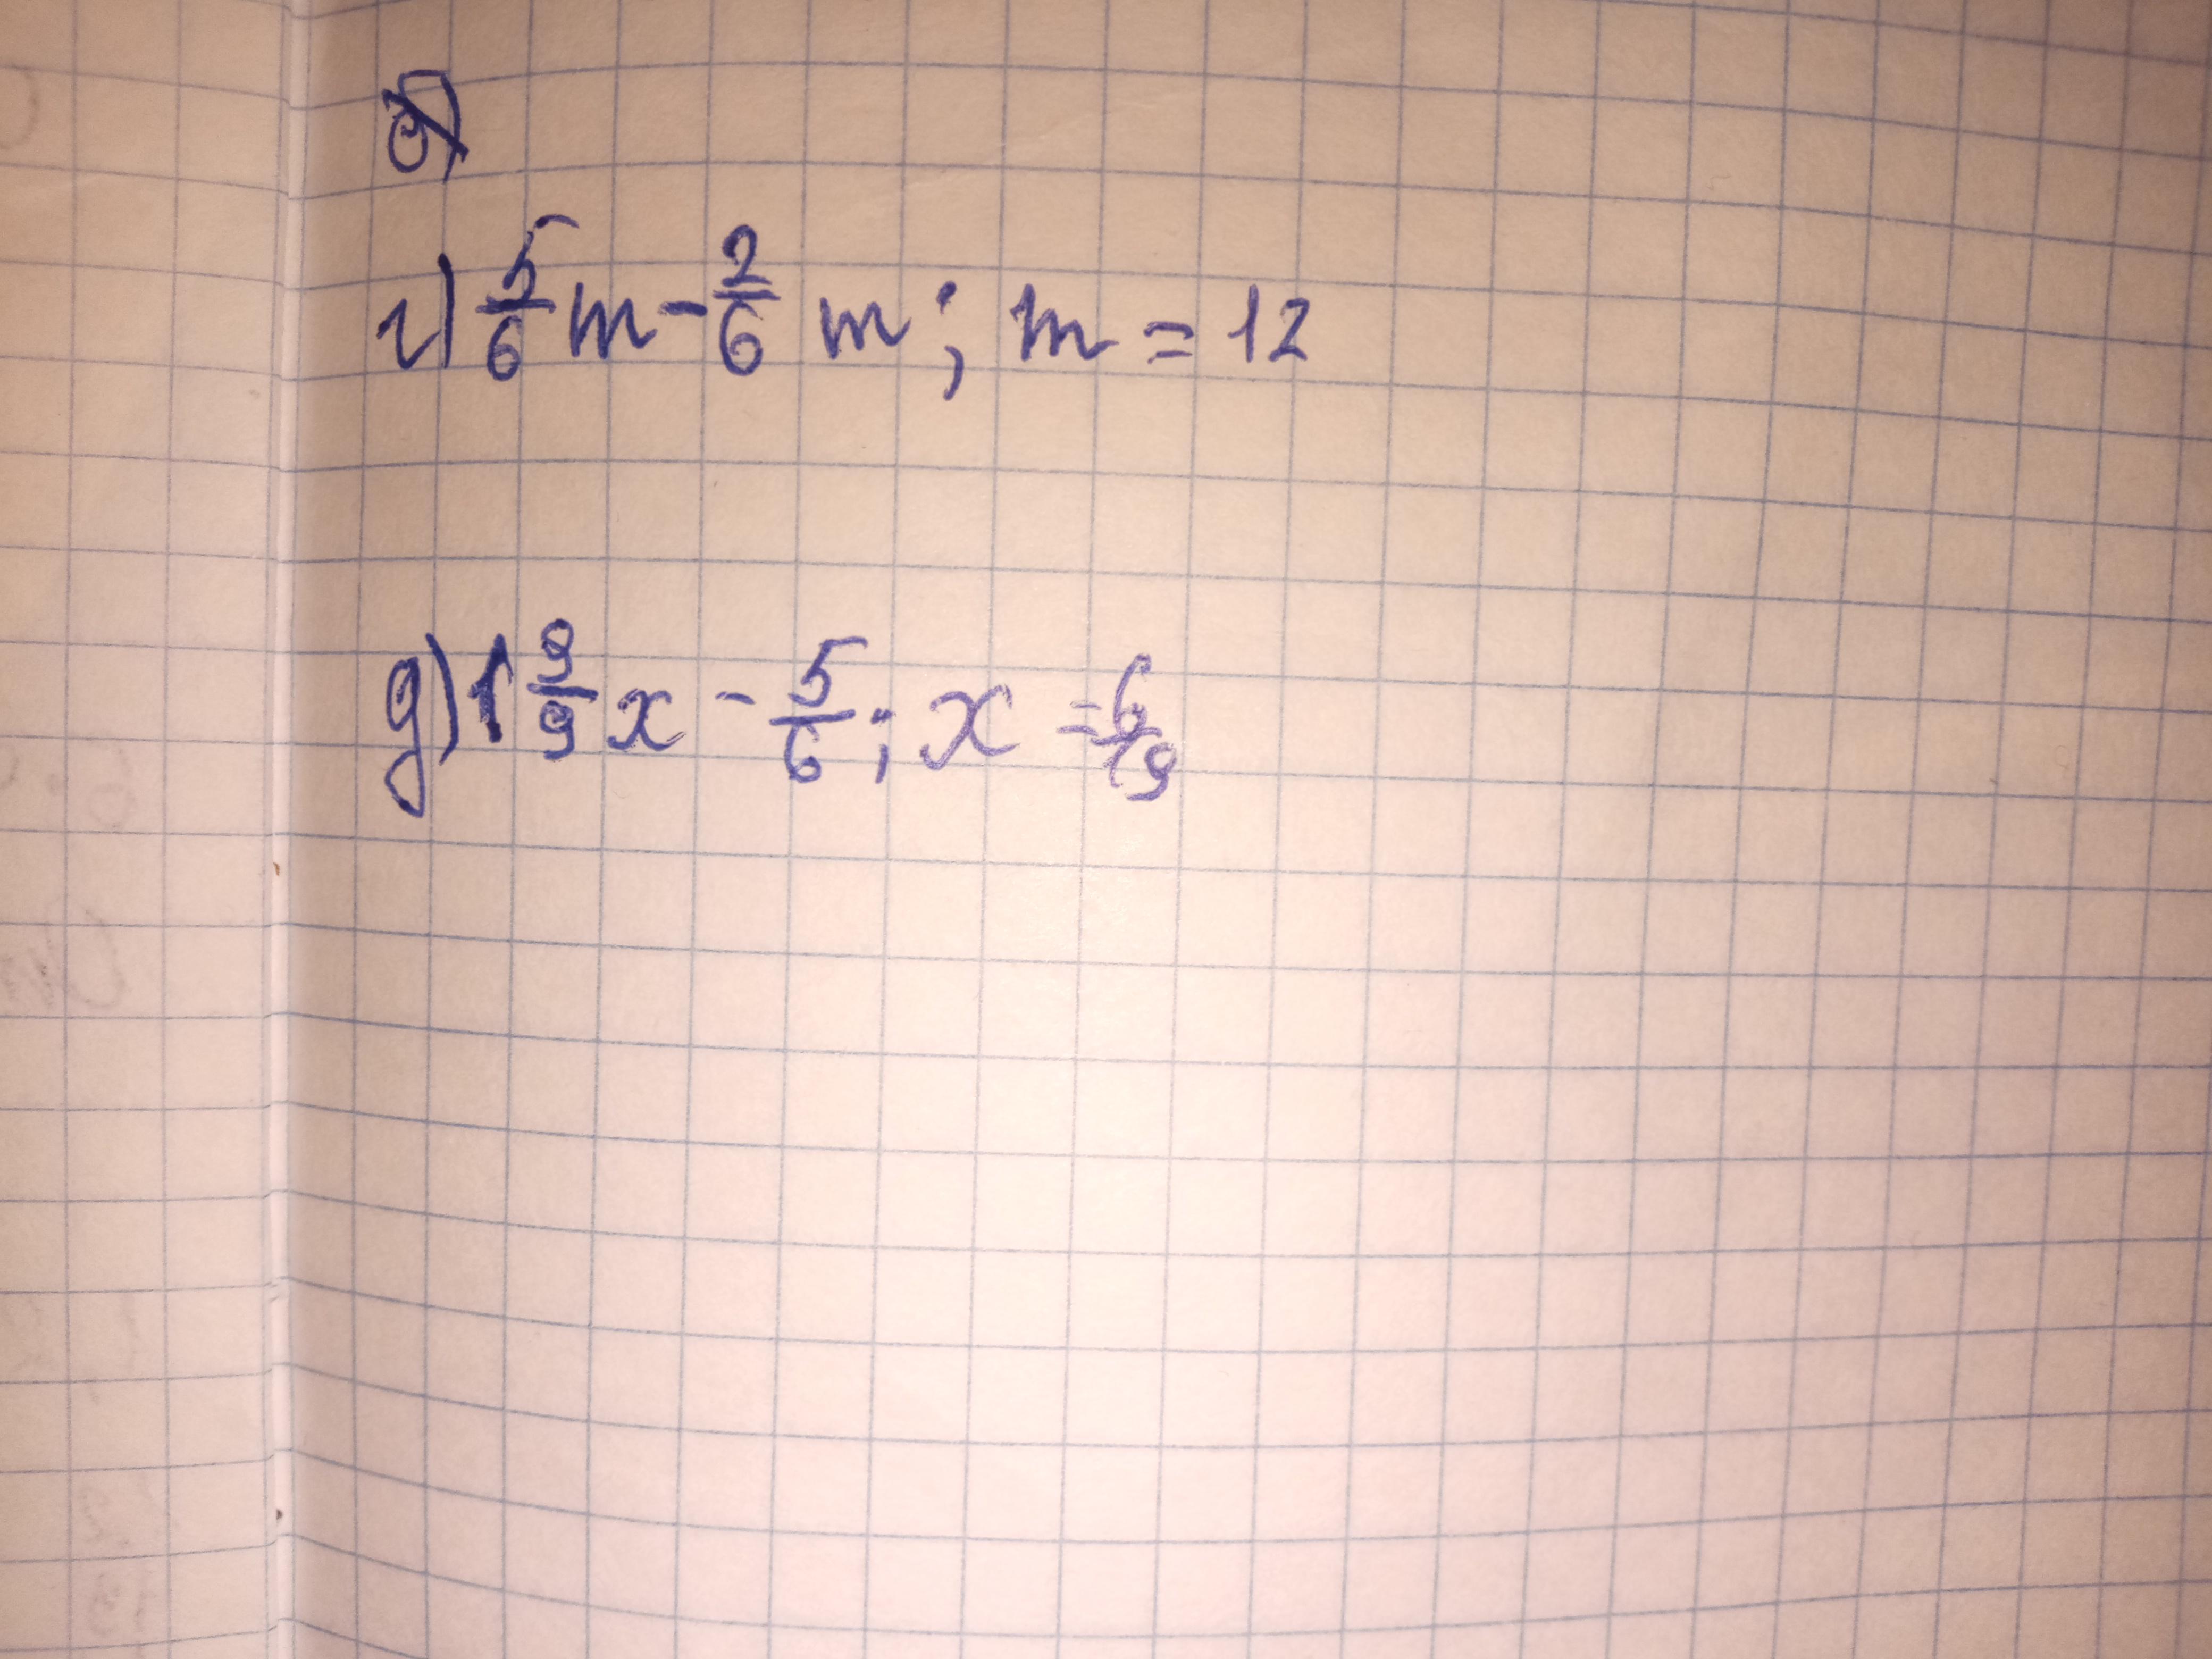 г) 5/6 m - 2/6 m; m = 12
g) 1 9/9 x - 5/6; x = 6/19